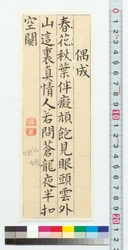 偶成
春花秋葉伴癡頑飽見眼頭雲外
山這裏真情人若問蒼龍夜半扣
空關